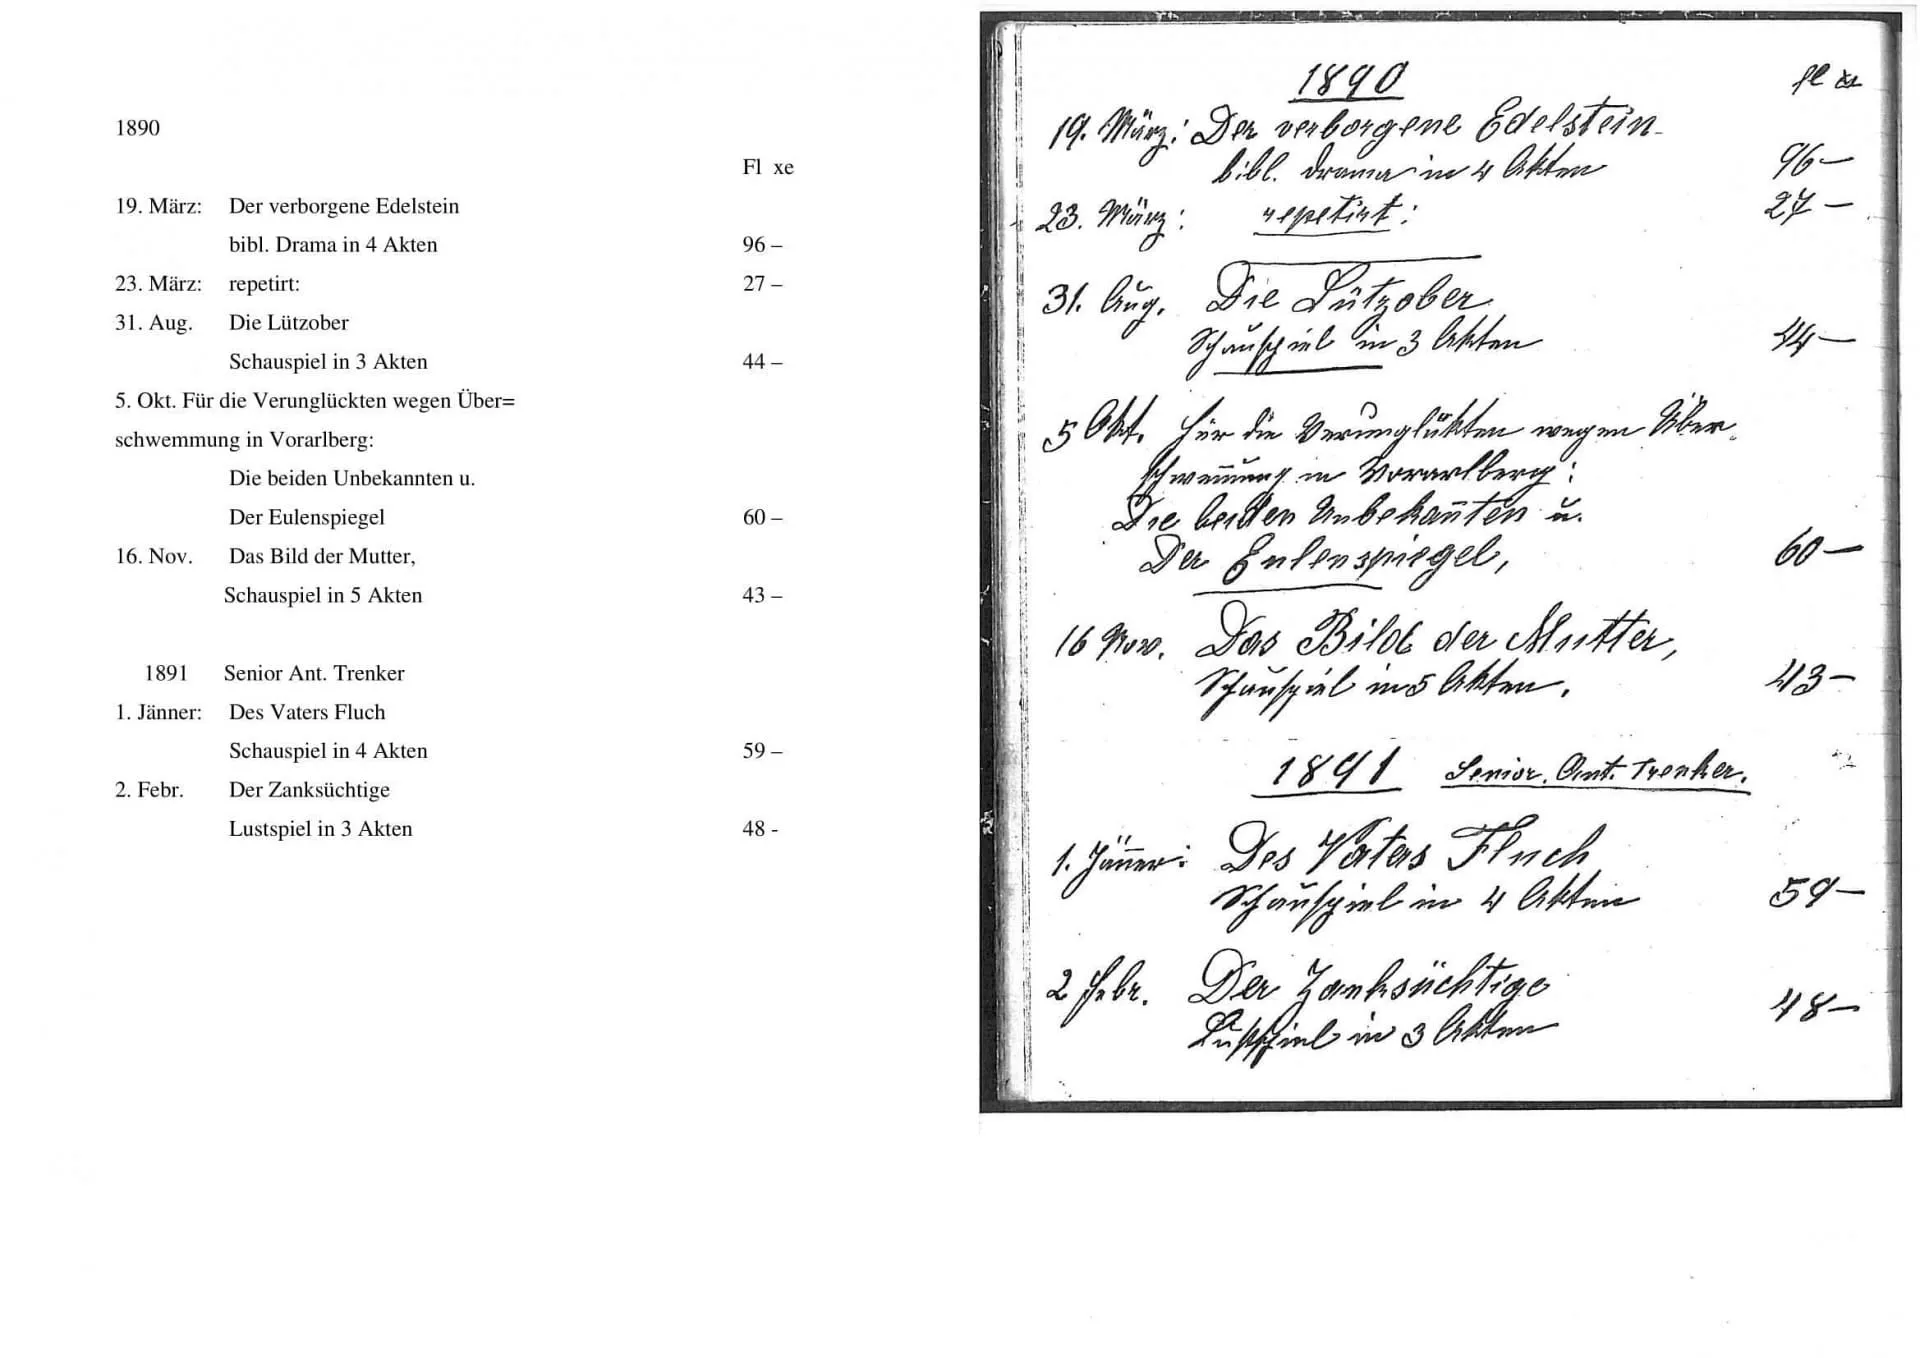 1890
Fl xe
19. März: Der verborgene Edelstein
bibl. Drama in 4 Akten 96 –
23. März: repetirt: 27 –
31. Aug. Die Lützober
Schauspiel in 3 Akten 44 –
5. Okt. Für die Verunglückten wegen Über=
schwemmung in Vorarlberg:
Die beiden Unbekannten u.
Der Eulenspiegel 60 –
16. Nov. Das Bild der Mutter,
Schauspiel in 5 Akten 43 –
1891 Senior Ant. Trenker
1. Jänner: Des Vaters Fluch
Schauspiel in 4 Akten 59 –
2. Febr. Der Zanksüchtige
Lustspiel in 3 Akten 48 -
1890 fl xr
19. März: Der verborgene Edelstein
bibl. Drama in 4 Akten 96 –
23. März: repetirt: 27 –
31. Aug. Die Lützober
Schauspiel in 3 Akten 44 –
5 Okt. Für die Verunglükten wegen Über=
schwem̄ung in Vorarlberg:
Die beiden Unbekan̄ten u.
Der Eulenspiegel, 60 –
16 Nov. Das Bild der Mutter,
Schauspiel in 5 Akten. 43 –
1891 Senior. Ant. Trenker.
1. Jän̄er: Des Vaters Fluch
Schauspiel in 4 Akten 59 –
2 Febr. Der Zanksüchtige
Lustspiel in 3 Akten 48 –